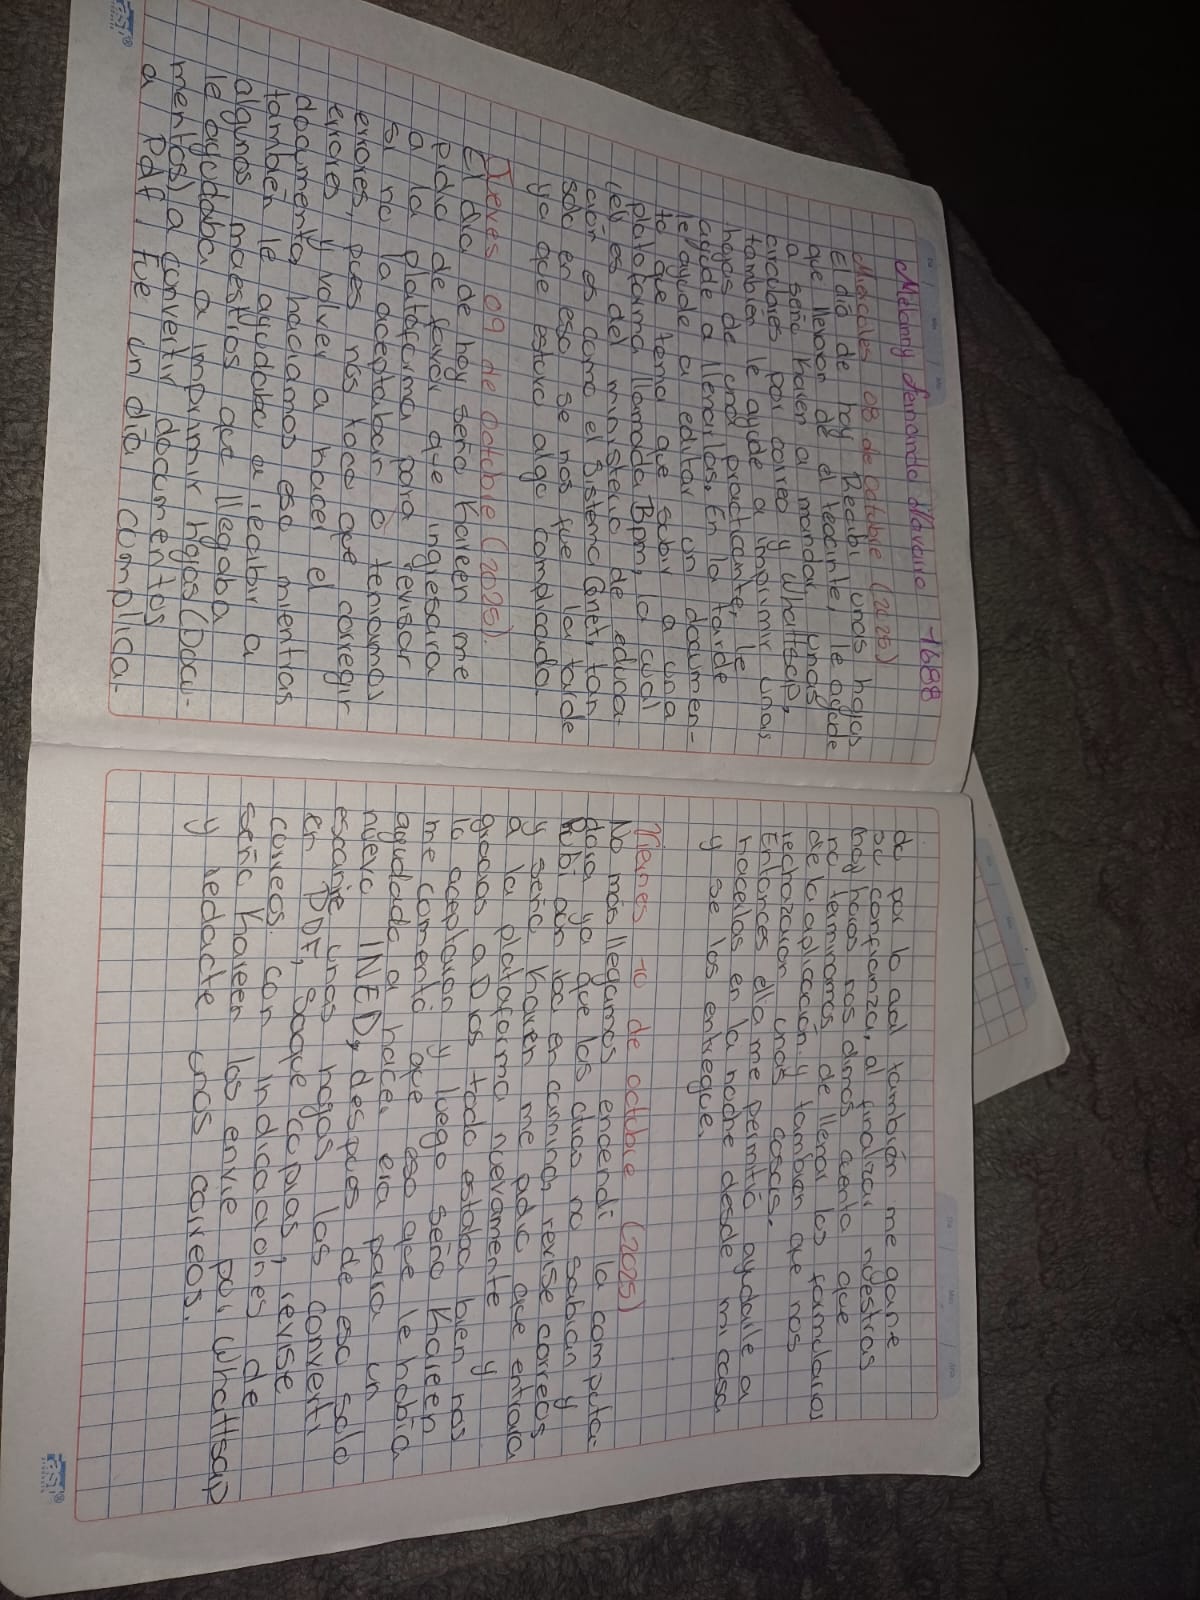 Melanny Fernanda Navarro -1688
Miercoles 08 de octubre (2025)
El día de hoy Recibi unas hojas
que llevaron de el tecinte, le ayude
a seño Karen a mandar unas
circulares por correo y Whattsap,
también le ayude a imprimir unas
hojas de una practicante, le
ayude a llenarlas. En la tarde
le ayude a editar un documen-
to que tenia que subir a una
plataforma llamada Bpm, la cual
es del ministerio de educa-
ción es como el Sistema Gnet, tan
solo en eso se nos fue la tarde
ya que estuvo algo complicado
Jueves 09 de octubre (2025).
El día de hoy seño Kareen me
pidio de favor que ingresara
a la plataforma para revisar
si no la aceptabar o teniamos
errores, pues nos toco que corregir
errores y volver a hacer el
documento, haciamos eso mientras
también le ayudaba a recibir a
algunos maestros que llegaba
le ayudaba a imprimir hojas (Docu-
mentos) a convertir documentos
a Pdf, fue un día complica-
do por lo cual también me gane
su confianza, al finalizar nuestras
may horas nos dimos cuenta que
no terminamos de llenar los formularios
de la aplicación y tambien que nos
rechazaron unas cosas.
Entonces ella me permitió ayudarle a
hacerlos en la noche desde mi casa
y se los entregue.
Viernes 10 de octubre (2025)
No más llegamos encendi la computa-
dora ya que los chicos no sabian y
subi con los en camino, revise correos
y seño Karen me pidio que entrara
a la plataforma nuevamente y
gracias a Dios todo estaba bien nos
lo aceptaron y luego seño Kareen
me comento que eso que le habia
ayudado a hacer era para un
nuevo INED, despues de eso solo
escanie unas hojas las converti
en PDF, saque copias, revise
correos con indicaciones de
seño Kareen los envie por Whattsap
y redacte unos correos.